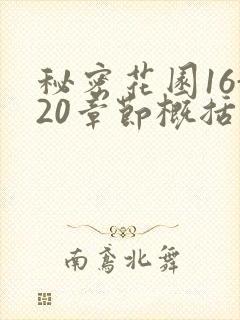 秘密花园16-
20章节概括
南鸢北舞